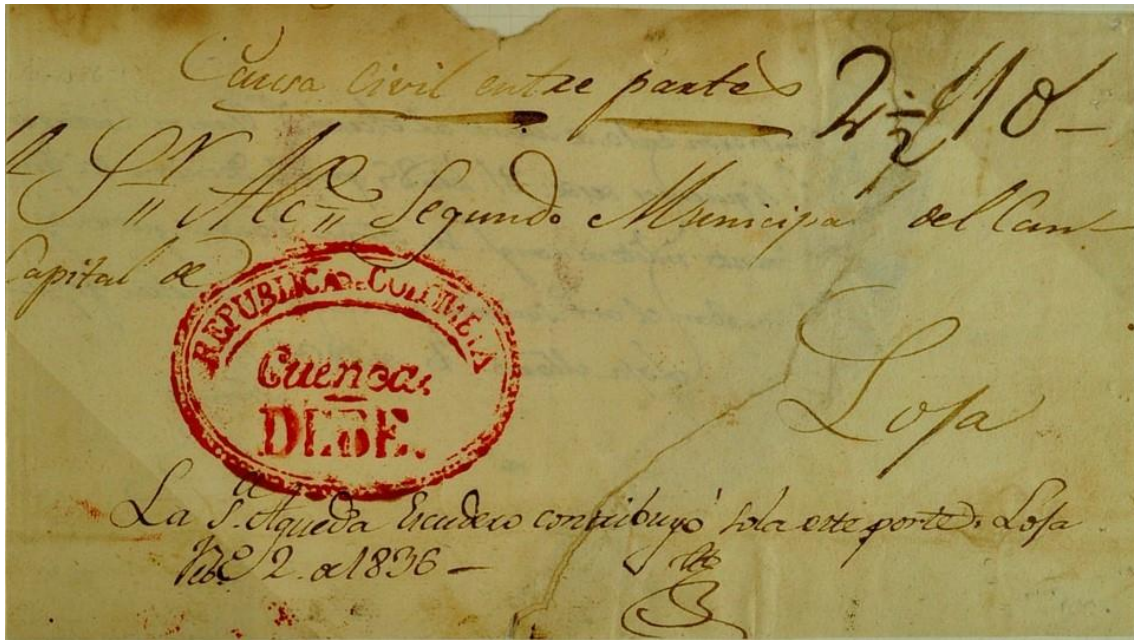 Causa Civil entre partes
2½ 18–
Sr Alce Segundo Municipal del Can
Capital de
Loja
REPUBLICA DE COLOMBIA
Cuenca
DEBE.
La Sa Agueda Escudero contribuyó sola este porte. Loja
2. de 1836 –